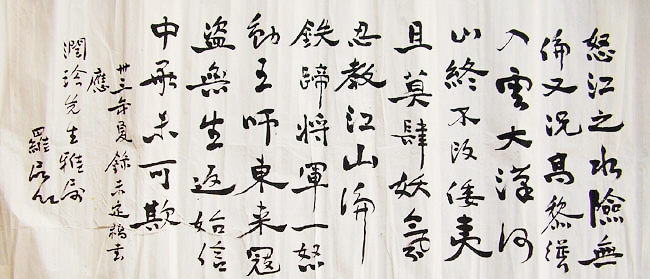 怒江之水險無
倫又況高黎縱
入雲大漢河
山終不改倭夷
且莫肆妖氛
忍教江山淪
鉄蹄將軍一怒
動王師東来冦
盜無生返始信
中華未可欺
卅三年夏錄未定稿云
應
潤珍先生雅屬
羅